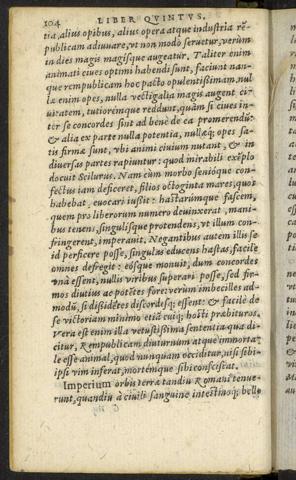 104 LIBER QVINTVS.
tia, alius opibus, alius opera atque industria rē-
publicam adiuuare, vt non modò seruetur, verùm
in dies magis magisque augeatur. Taliter enim
animati ciues optimi habendi sunt, faciunt nan-
que rempublicam hoc pacto opulentißimam, nul-
læ enim opes, nulla vectigalia magis augent ci-
uitatem, tutiorémque reddunt, quàm si ciues in-
ter se concordes sint ad benè de ea promerendū:
& alia ex parte nulla potentia, nullæq; opes sa-
tis firmæ sunt, vbi animi ciuium nutant, & in
diuersas partes rapiuntur: quod mirabili exēplo
docuit Scilurus. Nam cùm morbo senióque con-
fectus iam deficeret, filios octoginta mares, quos
habebat, euocari iußit: hastarúmque fascem,
quem pro liberorum numero deuinxerat, mani-
bus tenens, singulisque protendens, vt illum con-
fringerent, imperauit. Negantibus autem illis se
id perficere posse, singulas educens hastas, facilè
omnes defregit: eósque monuit, dum concordes
vnà essent, nullis viribus superari posse, sed fir-
mos diutius ac potētes fore: verùm imbecilles ad-
modū, si dißidētes discordesq; essent: & facilè de
se victoriam minimo etiā cuiq; hosti prabituros.
Vera est enim illa vetustißima sententia qua di-
citur, Rempublicam diuturnum atque immorta-
le esse animal, quod nunquam occiditur, nisi sibi-
ipsi vim inferat, mortémque sibi consciscat.
Imperium orbis terræ tandiu Romani tenue-
runt, quandiu à ciuili sanguine intestinoq; bello